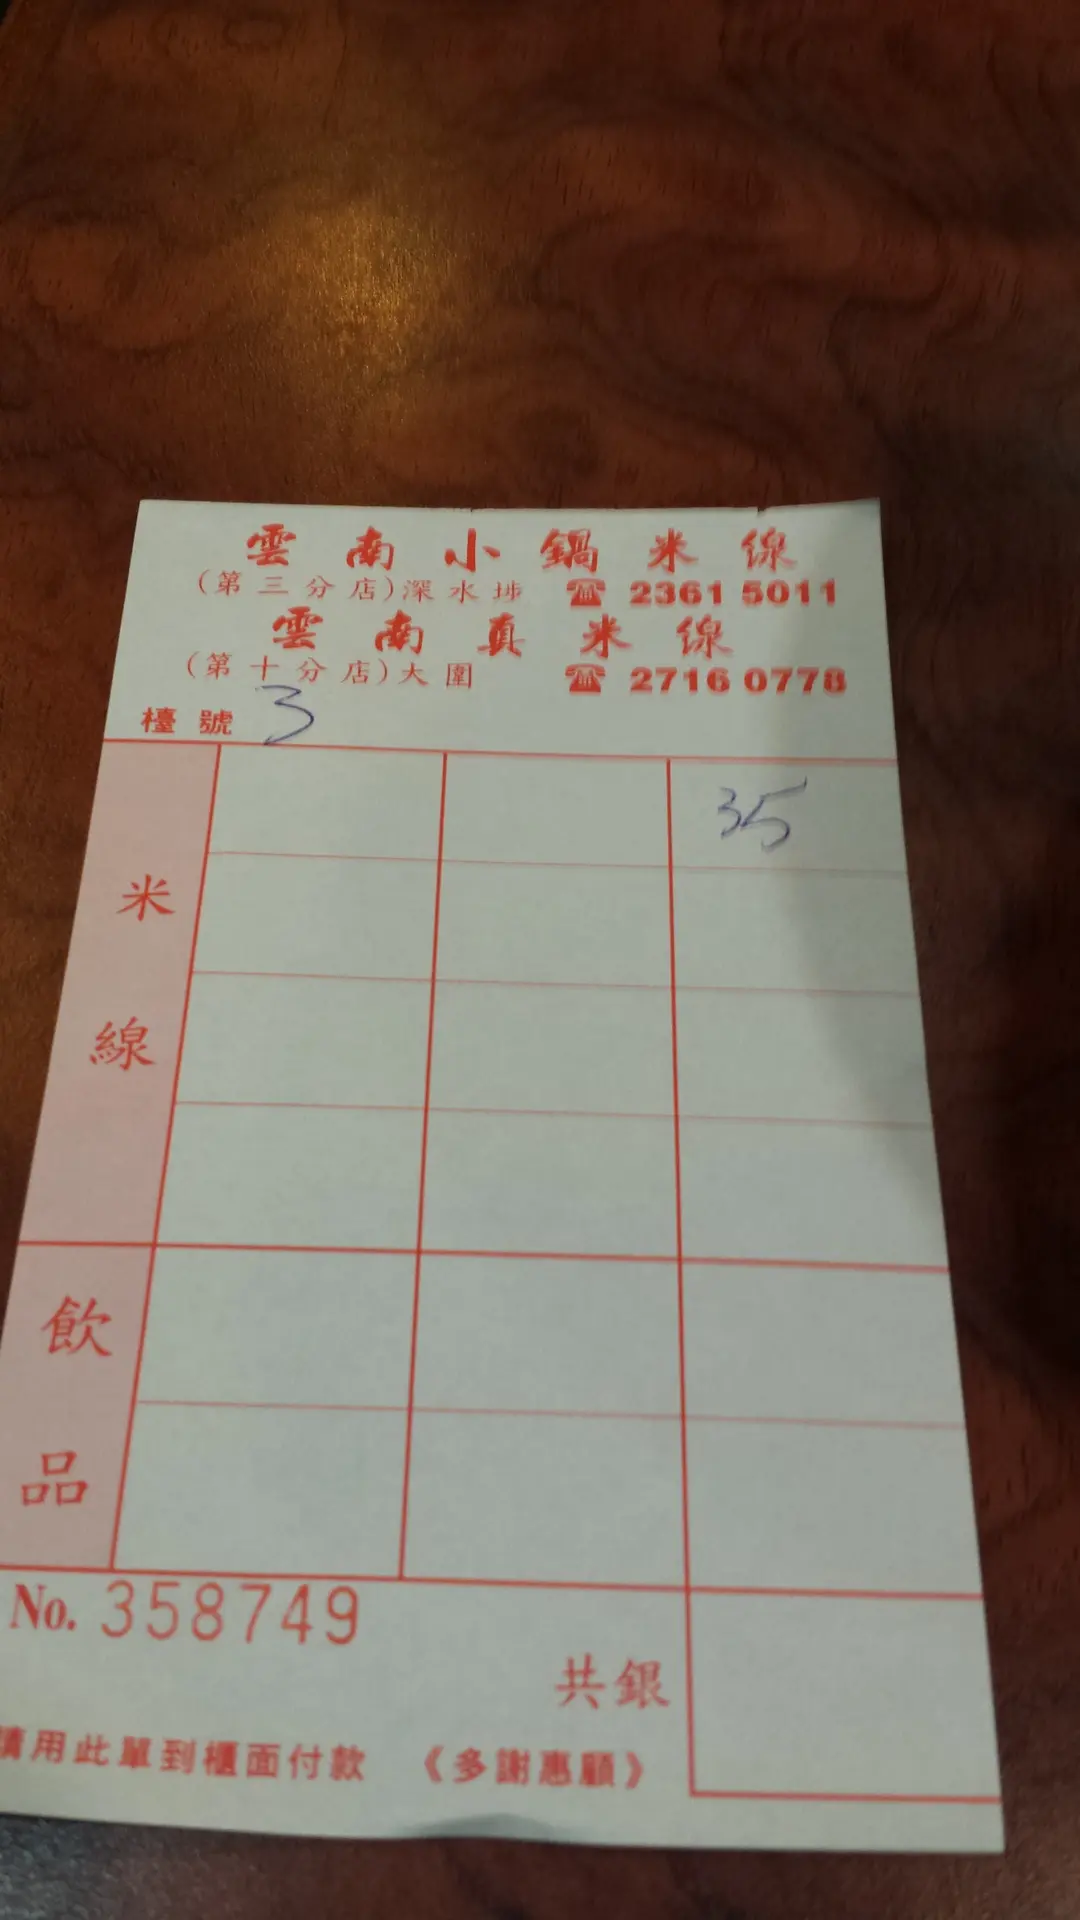 雲南小鍋米線
(第三分店)深水埗 ☎ 2361 5011
雲南真米線
(第十分店)大圍 ☎ 2716 0778
檯號 3
35
米線
飲品
No. 358749
共銀
請用此單到櫃面付款 《多謝惠顧》